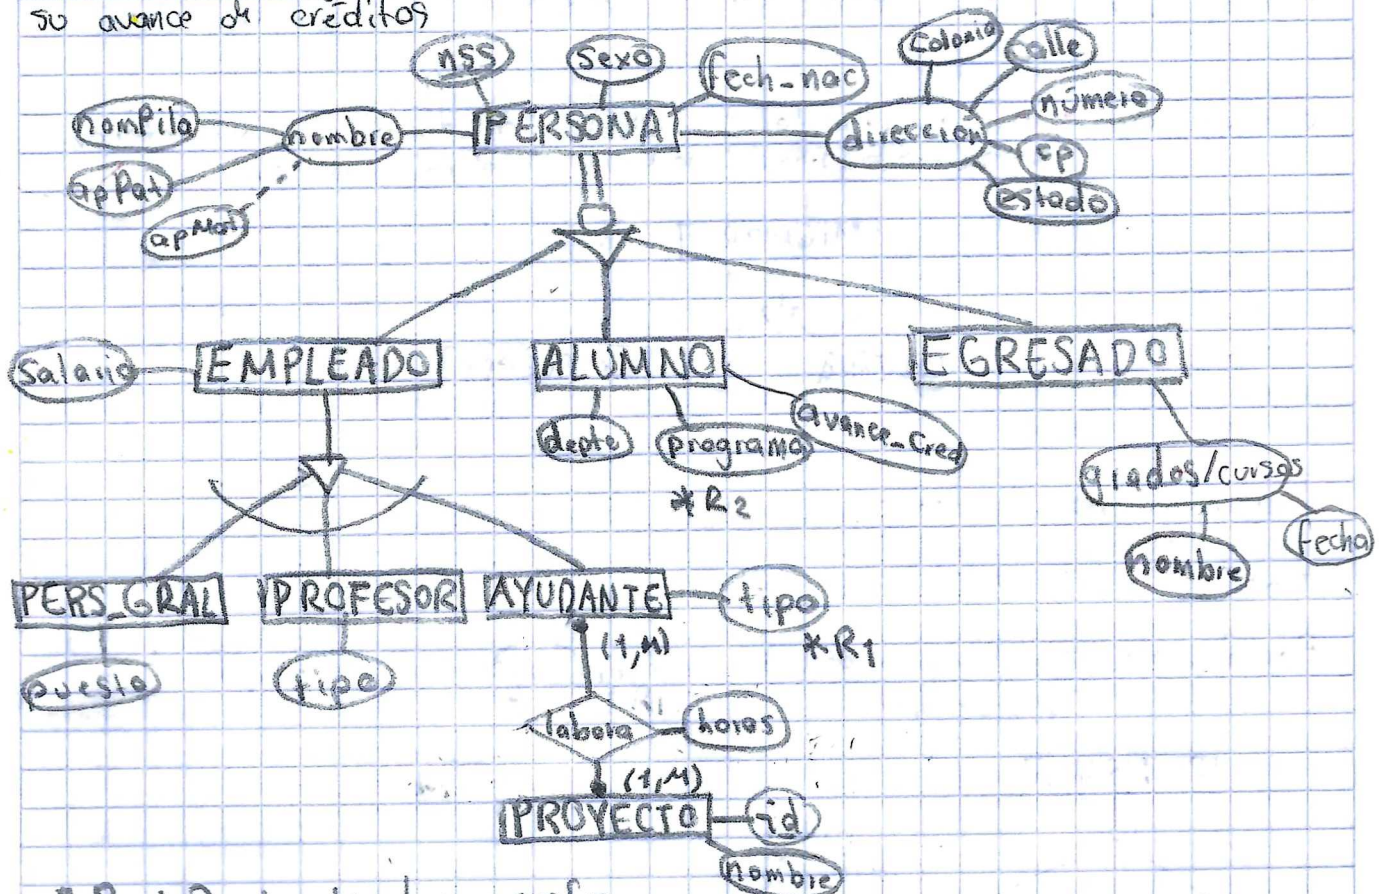 su avance de créditos
nss
sexo
fech_nac
Colonia
calle
número
cp
estado
nomPila
nombre
PERSONA
direccion
apPat
apMat
salario
EMPLEADO
ALUMNO
EGRESADO
depto
programa
avance_cred
*R2
grados/cursos
nombre
fecha
PERS_GRAL
PROFESOR
AYUDANTE
tipo
*R1
puesto
tipo
(1,M)
labora
horas
(1,M)
PROYECTO
id
nombre